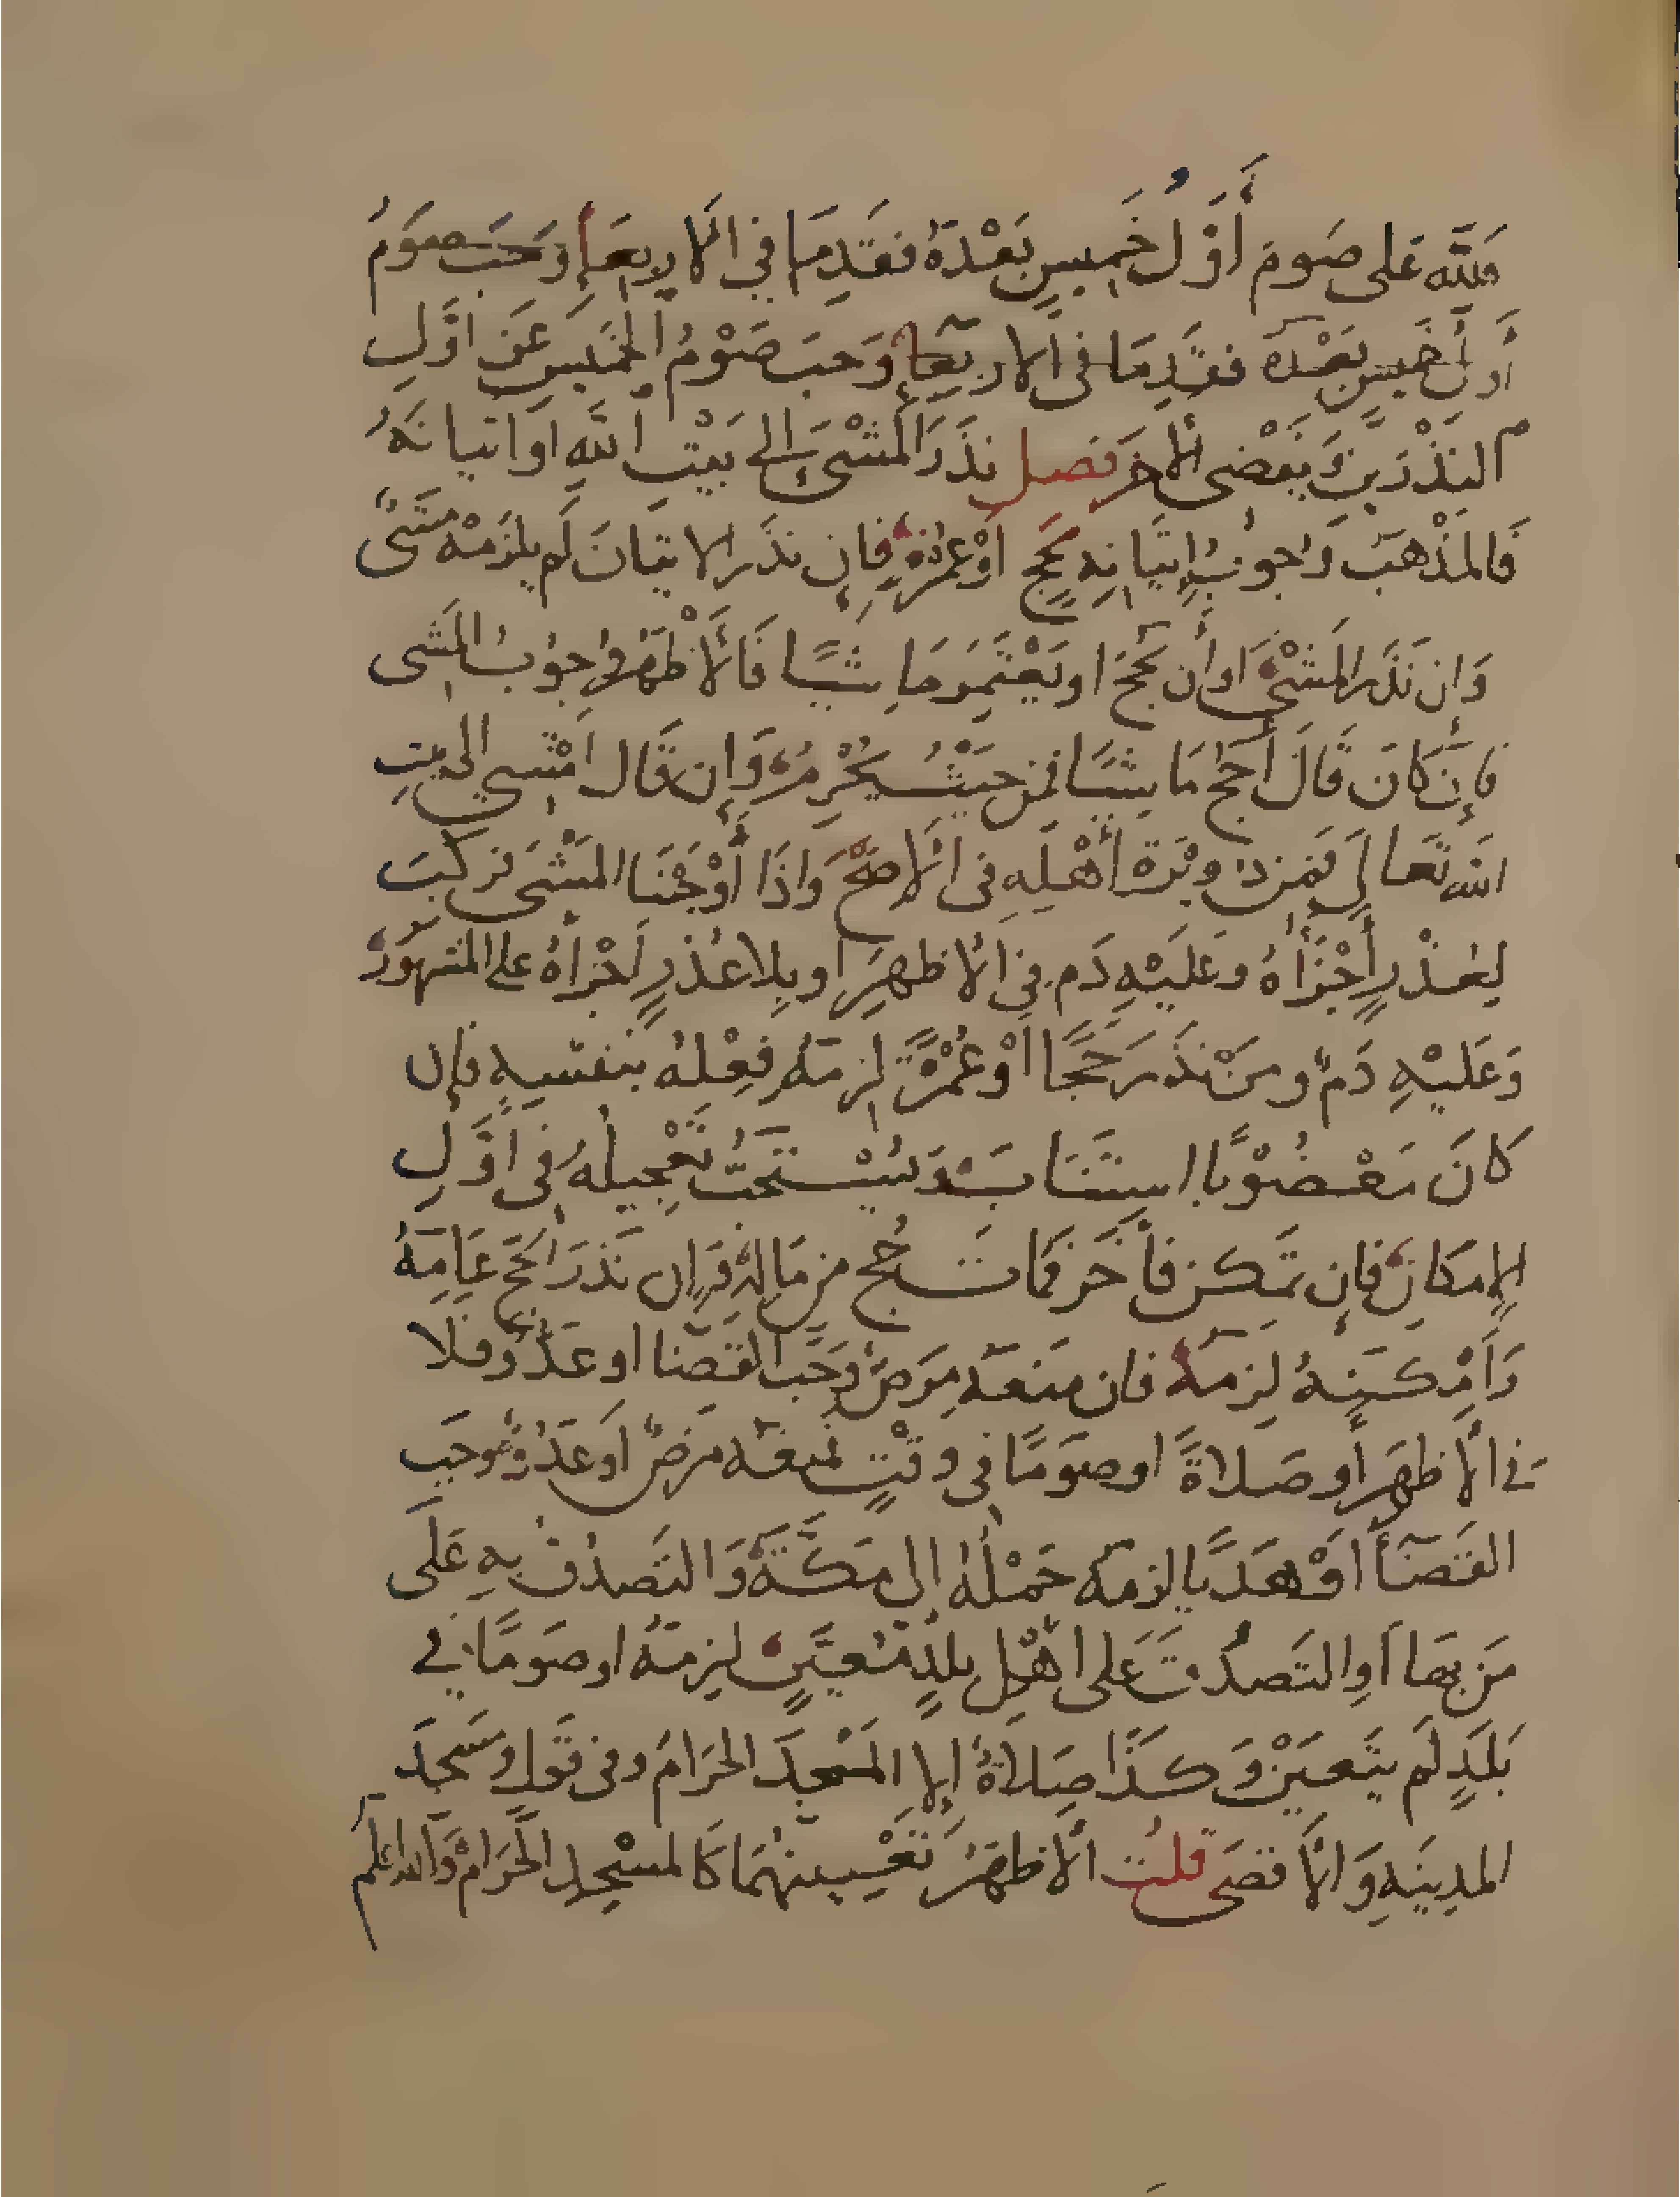 فلله على صوم أول خميس بعده فقدما في الاربعاء وجب صوم
أول خميس بعده فقدما في الاربعا وجب صوم الخميس عن اول
النذرين ويقضى الاخر فصل نذر المشى الى بيت الله او اتيانه
فالمذهب وجوب إتيانه بحج او عمرة فإن نذر الاتيان لم يلزمه مشى
وإن نذر المشى او أن يحج او يعتمر ماشيًا فالأظهر وجوب المشى
فإن كان قال أحج ماشيًا فمن حيث يحرم وإن قال امشي الى بيت
الله تعالى فمن دويرة أهله في الاصح واذا أوجبنا المشى فركب
لعذر أجزأه وعليه دم في الاظهر او بلا عذر اجزاه على المشهور
وعليه دم ومن نذر حجا او عمرة لزمه فعله بنفسه فإن
كان معضوبا استناب ويستحب تعجيله في اول
الإمكان فإن تمكن فأخر فمات حج من ماله وان نذر الحج عامه
وامكنه لزمه فان منعه مرض وجب القضا او عدو فلا
في الاظهر او صلاة او صوما في وقت فمنعه مرض او عدو وجب
القضا او هديا لزمه حمله الى مكة والتصدق به على
من بها او التصدق على اهل بلد معين لزمه او صوما في
بلد لم يتعين وكذا صلاة إلا المسجد الحرام وفى قول ومسجد
المدينه والاقصى قلت الاظهر تعيينهما كالمسجد الحرام والله اعلم